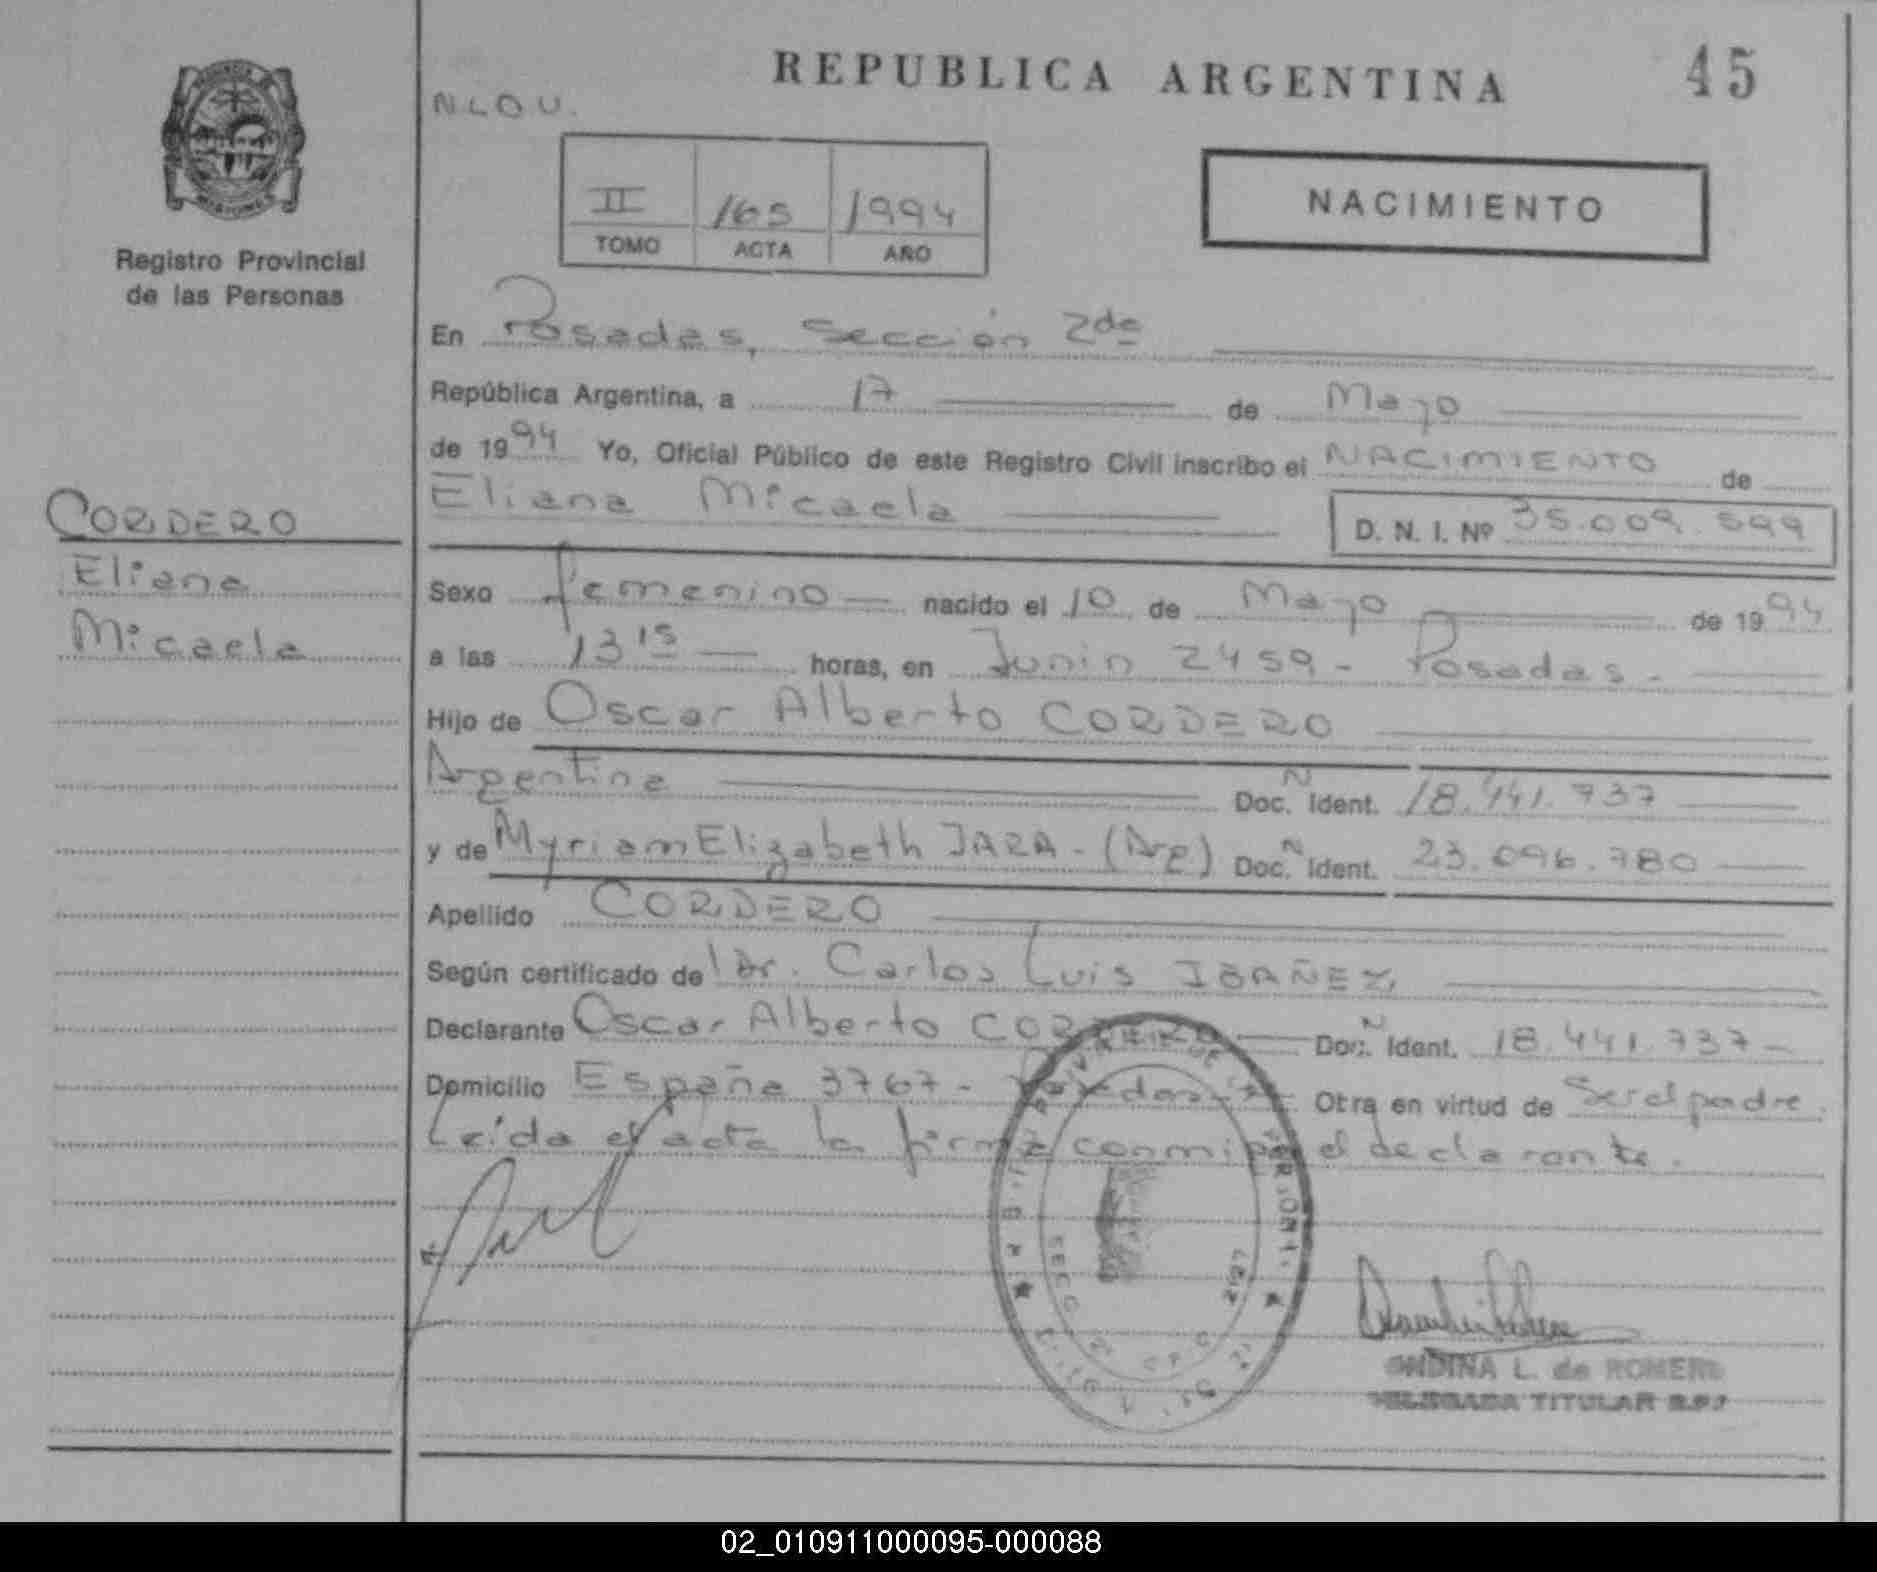 REPUBLICA ARGENTINA
45
N.L.O.U.
II 165 1994
TOMO ACTA AÑO
NACIMIENTO
Registro Provincial
de las Personas
En Posadas, Sección 2da
República Argentina, a 17 de Mayo
de 1994 Yo, Oficial Público de este Registro Civil inscribo el NACIMIENTO de
Eliana Micaela D. N. I. Nº 35.009.599
CORDERO
Eliana
Micaela
Sexo femenino nacido el 10 de Mayo de 1994
a las 13 15 horas, en Junin 2459 - Posadas -
Hijo de Oscar Alberto CORDERO
Argentina Doc. N Ident. 18.441.737
y de Myriam Elizabeth JARA - (Arg) Doc. N Ident. 23.096.780
Apellido CORDERO
Según certificado del Dr. Carlos Luis IBAÑEZ,
Declarante Oscar Alberto CORDERO Doc. N Ident. 18.441.737-
Domicilio España 3767 - Posadas - Otra en virtud de Ser el padre.
Leída el acta la firma conmigo el declarante.
ONDINA L. de ROMERO
DELEGADA TITULAR R.P.
02_010911000095-000088